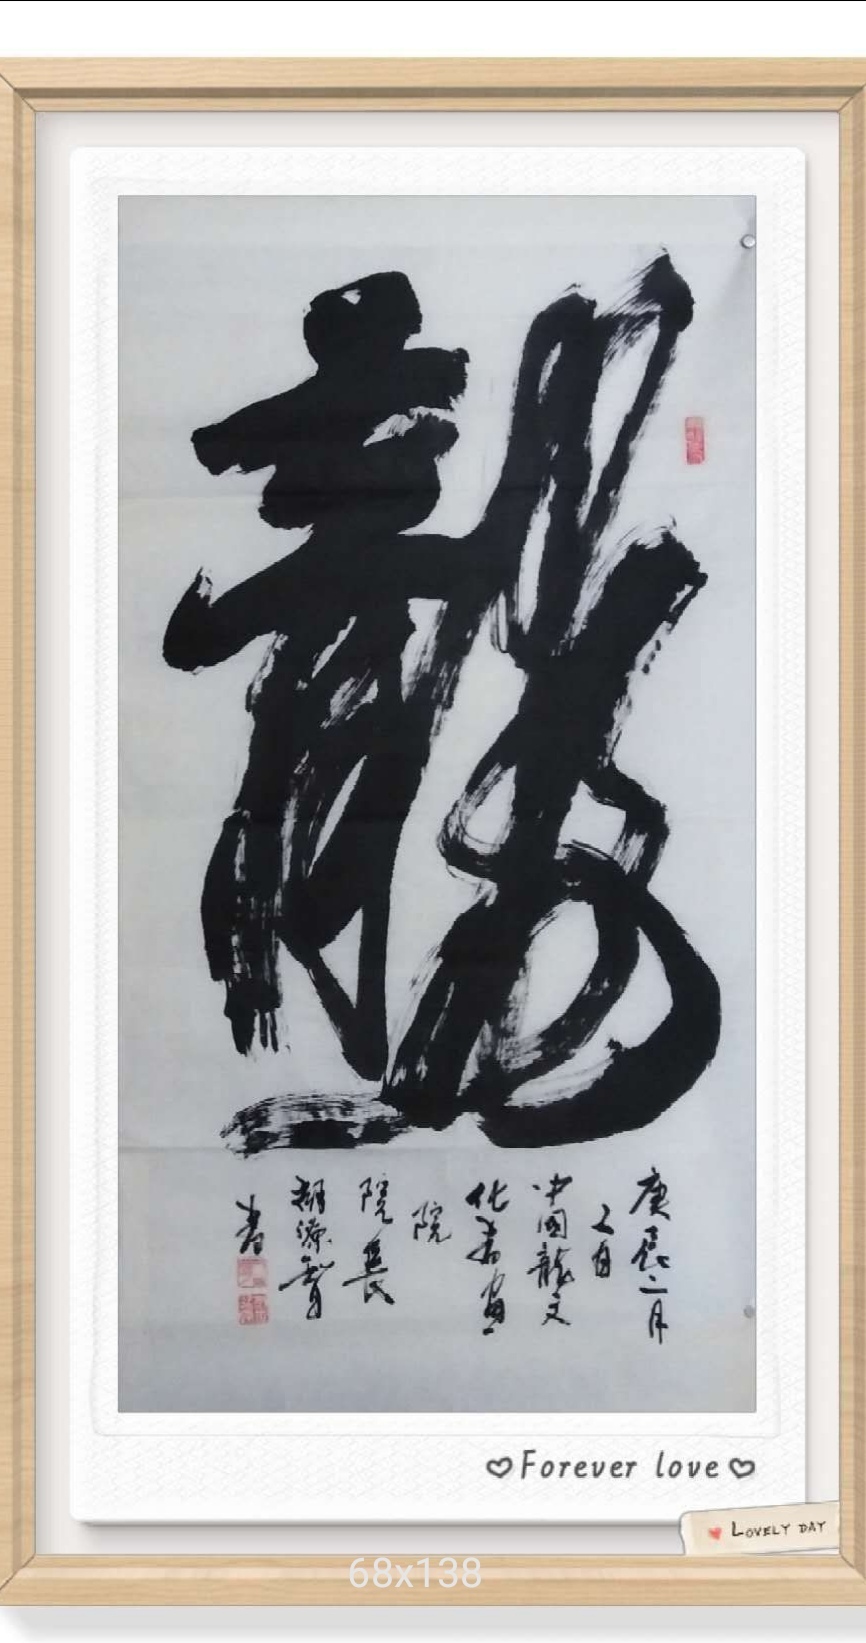 龍
庚辰二月
乙日
中国龍文
化書画
院
院長
胡源智
書
♡Forever love♡
LOVELY DAY
68x138